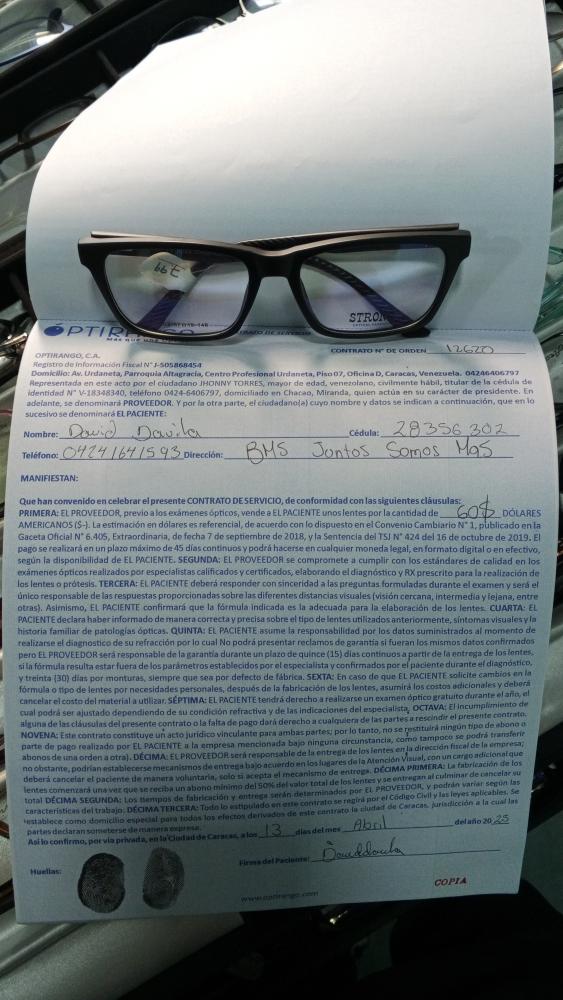 66 E
STRON
OPTIRANGO
CONTRATO DE SERVICIO
CONTRATO N° DE ORDEN 12620
OPTIRANGO, C.A.
Registro de Información Fiscal N° J-505868454
Domicilio: Av. Urdaneta, Parroquia Altagracia, Centro Profesional Urdaneta, Piso 07, Oficina D, Caracas, Venezuela. 04246406797
Representada en este acto por el ciudadano JHONNY TORRES, mayor de edad, venezolano, civilmente hábil, titular de la cédula de
identidad N° V-18348340, teléfono 0424-6406797, domiciliado en Chacao, Miranda, quien actúa en su carácter de presidente. En
adelante, se denominará PROVEEDOR. Y por la otra parte, el ciudadano(a) cuyo nombre y datos se indican a continuación, que en lo
sucesivo se denominará EL PACIENTE:
Nombre: David Davila Cédula: 28356302
Teléfono: 04241641593 Dirección: BMS Juntos Somos Mas
MANIFIESTAN:
Que han convenido en celebrar el presente CONTRATO DE SERVICIO, de conformidad con las siguientes cláusulas:
PRIMERA: EL PROVEEDOR, previo a los exámenes ópticos, vende a EL PACIENTE unos lentes por la cantidad de 60$ DÓLARES
AMERICANOS ($-). La estimación en dólares es referencial, de acuerdo con lo dispuesto en el Convenio Cambiario N° 1, publicado en la
Gaceta Oficial N° 6.405, Extraordinaria, de fecha 7 de septiembre de 2018, y la Sentencia del TSJ N° 424 del 16 de octubre de 2019. El
pago se realizará en un plazo máximo de 45 días continuos y podrá hacerse en cualquier moneda legal, en formato digital o en efectivo,
según la disponibilidad de EL PACIENTE. SEGUNDA: EL PROVEEDOR se compromete a cumplir con los estándares de calidad en los
exámenes ópticos realizados por especialistas calificados y certificados, elaborando el diagnóstico y RX prescrito para la realización de
los lentes o prótesis. TERCERA: EL PACIENTE deberá responder con sinceridad a las preguntas formuladas durante el examen y será el
único responsable de las respuestas proporcionadas sobre las diferentes distancias visuales (visión cercana, intermedia y lejana, entre
otras). Asimismo, EL PACIENTE confirmará que la fórmula indicada es la adecuada para la elaboración de los lentes. CUARTA: EL
PACIENTE declara haber informado de manera correcta y precisa sobre el tipo de lentes utilizados anteriormente, síntomas visuales y la
historia familiar de patologías ópticas. QUINTA: EL PACIENTE asume la responsabilidad por los datos suministrados al momento de
realizarse el diagnostico de su refracción por lo cual No podrá presentar reclamos de garantía si fueran los mismos datos confirmados
pero EL PROVEEDOR será responsable de la garantía durante un plazo de quince (15) días continuos a partir de la entrega de los lentes,
si la fórmula resulta estar fuera de los parámetros establecidos por el especialista y confirmados por el paciente durante el diagnóstico,
y treinta (30) días por monturas, siempre que sea por defecto de fábrica. SEXTA: En caso de que EL PACIENTE solicite cambios en la
fórmula o tipo de lentes por necesidades personales, después de la fabricación de los lentes, asumirá los costos adicionales y deberá
cancelar el costo del material a utilizar. SÉPTIMA: EL PACIENTE tendrá derecho a realizarse un examen óptico gratuito durante el año, el
cual podrá ser ajustado dependiendo de su condición refractiva y de las indicaciones del especialista. OCTAVA: El incumplimiento de
alguna de las cláusulas del presente contrato o la falta de pago dará derecho a cualquiera de las partes a rescindir el presente contrato.
NOVENA: Este contrato constituye un acto jurídico vinculante para ambas partes; por lo tanto, no se restituirá ningún tipo de abono o
parte de pago realizado por EL PACIENTE a la empresa mencionada bajo ninguna circunstancia, como tampoco se podrá transferir
abonos de una orden a otra). DÉCIMA: EL PROVEEDOR será responsable de la entrega de los lentes en la dirección fiscal de la empresa;
no obstante, podrían establecerse mecanismos de entrega bajo acuerdo en los lugares de la Atención Visual, con un cargo adicional que
deberá cancelar el paciente de manera voluntaria, solo si acepta el mecanismo de entrega. DÉCIMA PRIMERA: La fabricación de los
lentes comenzará una vez que se reciba un abono mínimo del 50% del valor total de los lentes y se entregan al culminar de cancelar su
total DÉCIMA SEGUNDA: Los tiempos de fabricación y entrega serán determinados por EL PROVEEDOR, y podrán variar según las
características del trabajo: DÉCIMA TERCERA: Todo lo estipulado en este contrato se regirá por el Código Civil y las leyes aplicables. Se
establece como domicilio especial para todos los efectos derivados de este contrato la ciudad de Caracas, jurisdicción a la cual las
partes declaran someterse de manera expresa.
Así lo confirmo, por vía privada, en la Ciudad de Caracas, a los 13 días del mes Abril del año 2025
Firma del Paciente: Daviddavila
Huellas:
COPIA
www.optirango.com